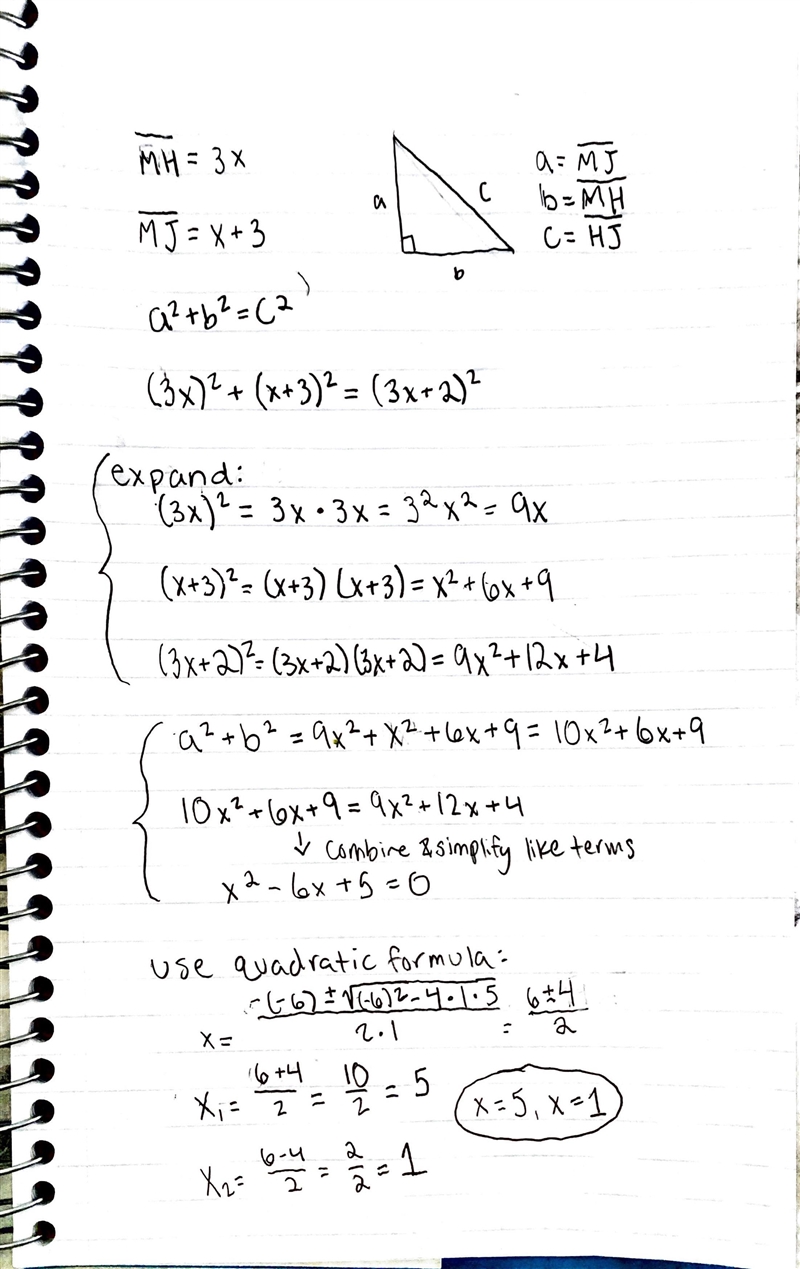 M̅H̅ = 3x
M̅J̅ = x + 3
a
c
b
a = M̅J̅
b = M̅H̅
c = H̅J̅
a² + b² = c²
(3x)² + (x+3)² = (3x+2)²
expand:
(3x)² = 3x · 3x = 3²x² = 9x
(x+3)² = (x+3) (x+3) = x² + 6x + 9
(3x+2)² = (3x+2)(3x+2) = 9x² + 12x + 4
a² + b² = 9x² + x² + 6x + 9 = 10x² + 6x + 9
10x² + 6x + 9 = 9x² + 12x + 4
↓ combine & simplify like terms
x² - 6x + 5 = 0
use quadratic formula:
x = -(-6) ± √(-6)² - 4 · 1 · 5 / 2 · 1 = 6 ± 4 / 2
x₁ = 6+4 / 2 = 10 / 2 = 5
x = 5, x = 1
x₂ = 6-4 / 2 = 2 / 2 = 1